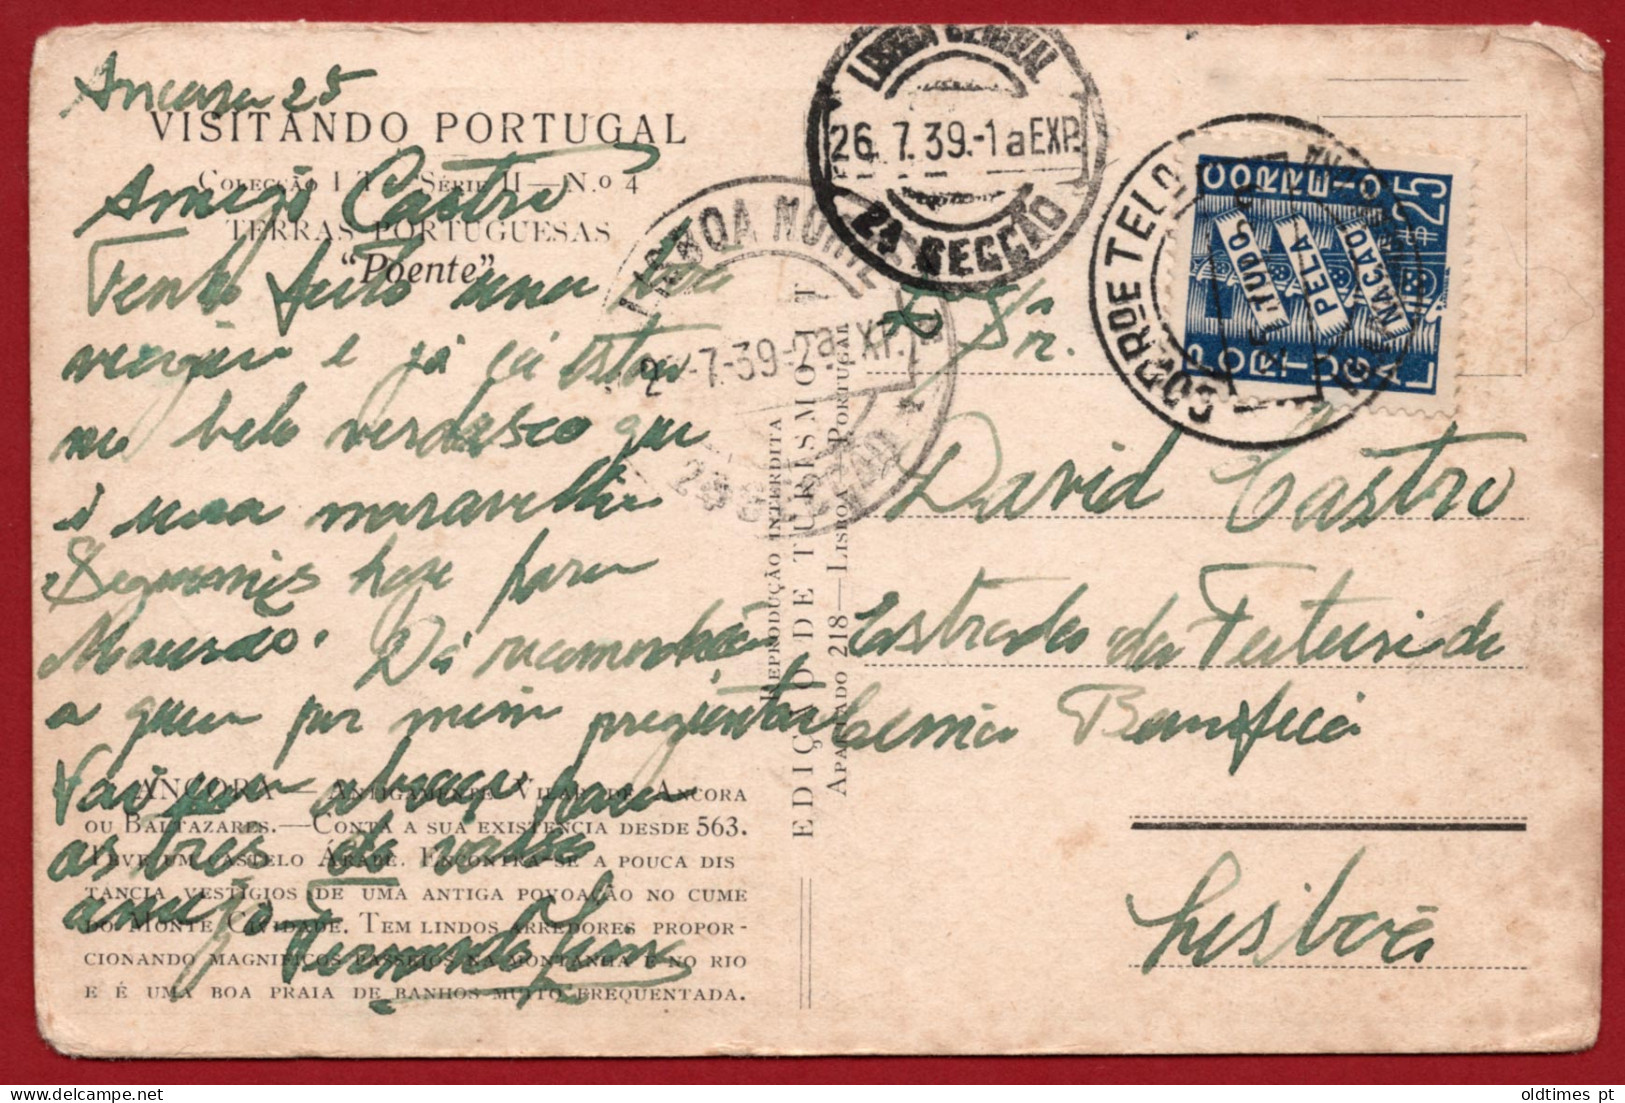 Ancora 25
VISITANDO PORTUGAL
Colecção I T - Série II — N.º 4
TERRAS PORTUGUESAS
"Poente"
Amigo Castro
Tenho feito uma boa
viagem e já cá estou
no belo verdasco que
é uma maravilha
Seguimos hoje para
Dá recomendações
a quem por mim preguntar
Vão um abraço para
os três do vosso
amigo
Fernando
ANCORA — Antigamente Vilar de Ancora
ou Baltazares. — Conta a sua existencia desde 563.
Teve um castelo Árabe. Encontra-se a pouca dis
tância vestígios de uma antiga povoação no cume
do Monte Cividade. Tem lindos arredores propor-
cionando magníficos passeios na montanha e no rio
e é uma boa praia de banhos muito frequentada.
Reprodução interdita
EDIÇÃO DE TURISMO I T
Apartado 218 — Lisboa — Portugal
LISBOA CENTRAL
26.7.39.-1aEXP.
2A SECÇÃO
LISBOA NORTE
7-39-2aEXP.
2A SECÇÃO
CORR DE TEL
CORREIO
$25
TUDO PELA NAÇÃO
PORTUGAL
Sr.
David Castro
Estrada da
Benfica
Lisboa
oldtimes pt